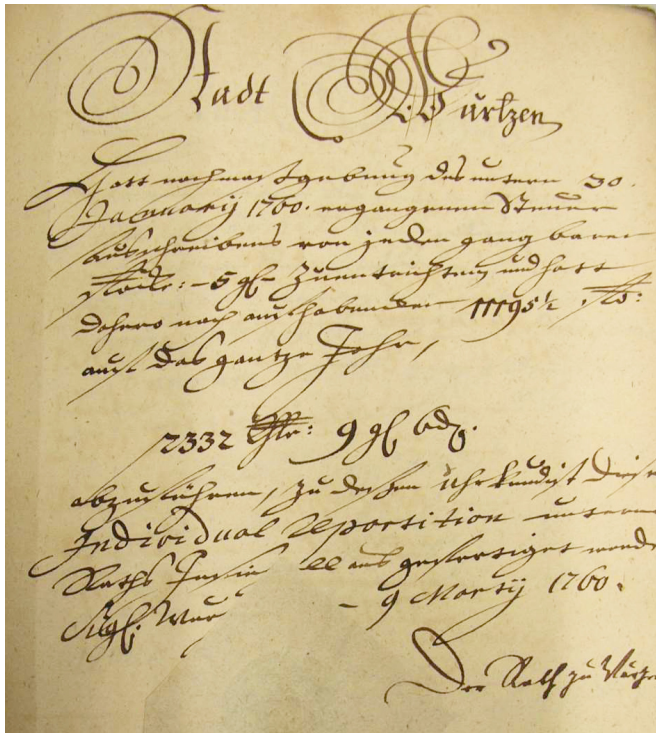 Stadt Wurtzen
Hatt nach maasgebung des unterm 30.
January 1760. ergangenen Steuer
Ausschreibens von jeden gangbaren
Schocke: -5 gl- zu entrichten und hatt
dahero nach aufhabenden 11195½ Sco:
auf das gantze Jahr,
2332 Thlr: 9 gl 6 dz.
abzuführen, zu dessen Uhrkund ist diese
Individual Repartition unterm
Raths Insie aus gefertiget
- 9 Marty 1760.
Der Rath zu